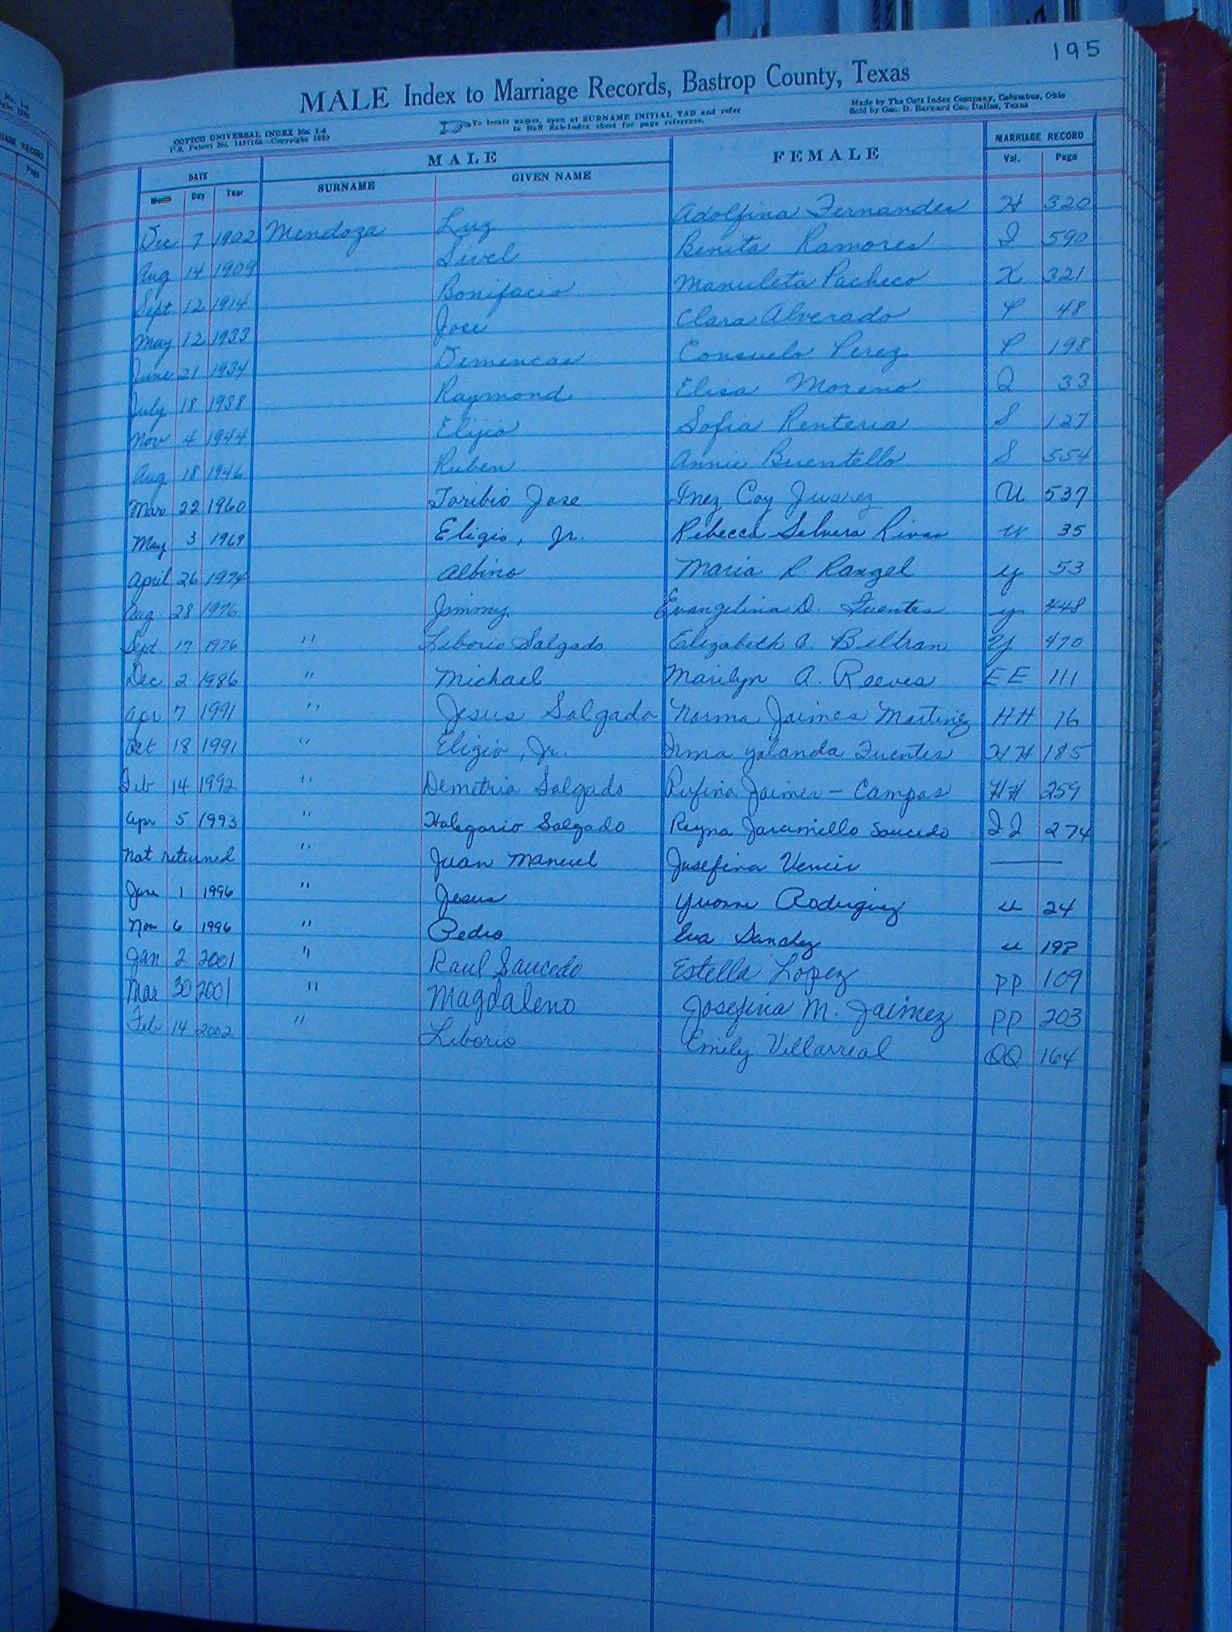 195
MALE Index to Marriage Records, Bastrop County, Texas
COTTCO UNIVERSAL INDEX No. 1-d
To locate names, open at SURNAME INITIAL TAB and refer
Made by The Cott Index Company, Columbus, Ohio
Sold by Geo. D. Barnard Co., Dallas, Texas
DATE MALE FEMALE MARRIAGE RECORD
Month Day Year SURNAME GIVEN NAME Vol. Page
Dec 7 1902 Mendoza Luz Adolfina Fernandes H 320
Aug 14 1909 Sivel Benita Ramores I 590
Sept 12 1914 Bonifacio Manuleta Pacheco K 321
May 12 1933 Jose Clara Alverado P 48
June 21 1934 Demencas Consuelo Perez P 198
July 18 1938 Raymond Elisa Moreno Q 33
Nov 4 1944 Elijio Sofia Renteria S 127
Aug 18 1946 Ruben Annie Buentello S 554
Mar 22 1960 Toribio Jose Inez Coy Juarez U 537
May 3 1969 Eligio, Jr. Rebecca Selvera Rivas W 35
April 26 1974 Albino Maria R. Rangel Y 53
Aug 28 1976 Jimmy Evangelina D. Fuentes Y 448
Sept 17 1976 " Liborio Salgado Elizabeth C. Beltran Y 470
Dec 2 1986 " Michael Marilyn A. Reeves EE 111
Apr 7 1991 " Jesus Salgado Norma Jaimes Martinez HH 16
Oct 18 1991 " Eligio, Jr. Irma Yolanda Fuentes HH 185
Feb 14 1992 " Demetrio Salgado Rufina Jaimes - Campos HH 259
Apr 5 1993 " Halegario Salgado Reyna Jaramillo Saucedo II 274
Not returned " Juan Manuel Josefina
June 1 1996 " Jesus Yvonne Rodriguez 24
Nov 6 1996 " Pedro Eva Sanchez 198
Jan 2 2001 " Raul Saucedo Estella Lopez PP 109
Mar 30 2001 " Magdaleno Josefina M. Jaimez PP 203
Feb 14 2002 " Liborio Emily Villarreal QQ 164